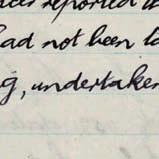 reported
had not been
, undertaken